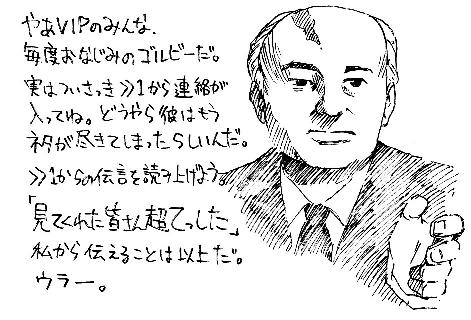 やあVIPのみんな、
毎度おなじみのゴルビーだ。
実はついさっき≫1から連絡が
入ってね。どうやら彼はもう
ネタが尽きてしまったらしいんだ。
≫1からの伝言を読み上げよう。
「見てくれた皆さん超てっした」
私から伝えることは以上だ。
ウラー。